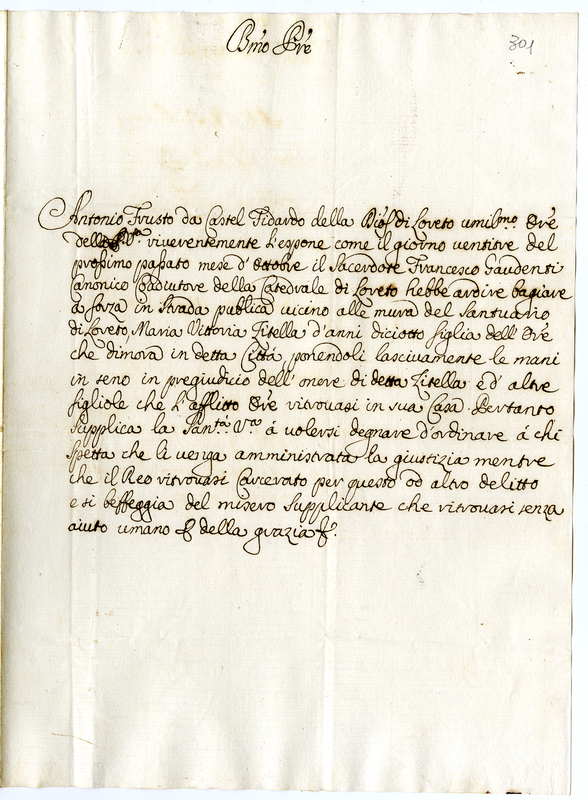 Bmo Pre
301
Antonio Frusto da Castel Fidardo della Dioc. di Loreto umilmo. Ore
della S.V. riverentemente l'espone come il giorno ventitre del
prossimo passato mese d'ottobre il Sacerdote Francesco Gaudenti
Canonico Coadiutore della Catedrale di Loreto hebbe ardire bagiare
a forza in strada publica vicino alle mura del Santuario
di Loreto, Maria Vittoria Zitella d'anni diciotto figlia dell'Ore
che dimora in detta Città, ponendoli lascivamente le mani
in seno in pregiudicio dell'onore di detta Zitella e d'altre
figliole che l'afflitto Ore ritrovasi in sua Casa. Pertanto
Supplica la Santà. Vra à volersi degnare d'ordinare à chi
spetta che li venga amministrata la giustizia mentre
che il Reo ritrovasi Carcerato per questo od altro delitto
e si beffeggia del misero supplicante che ritrovasi senza
aiuto umano che della grazia